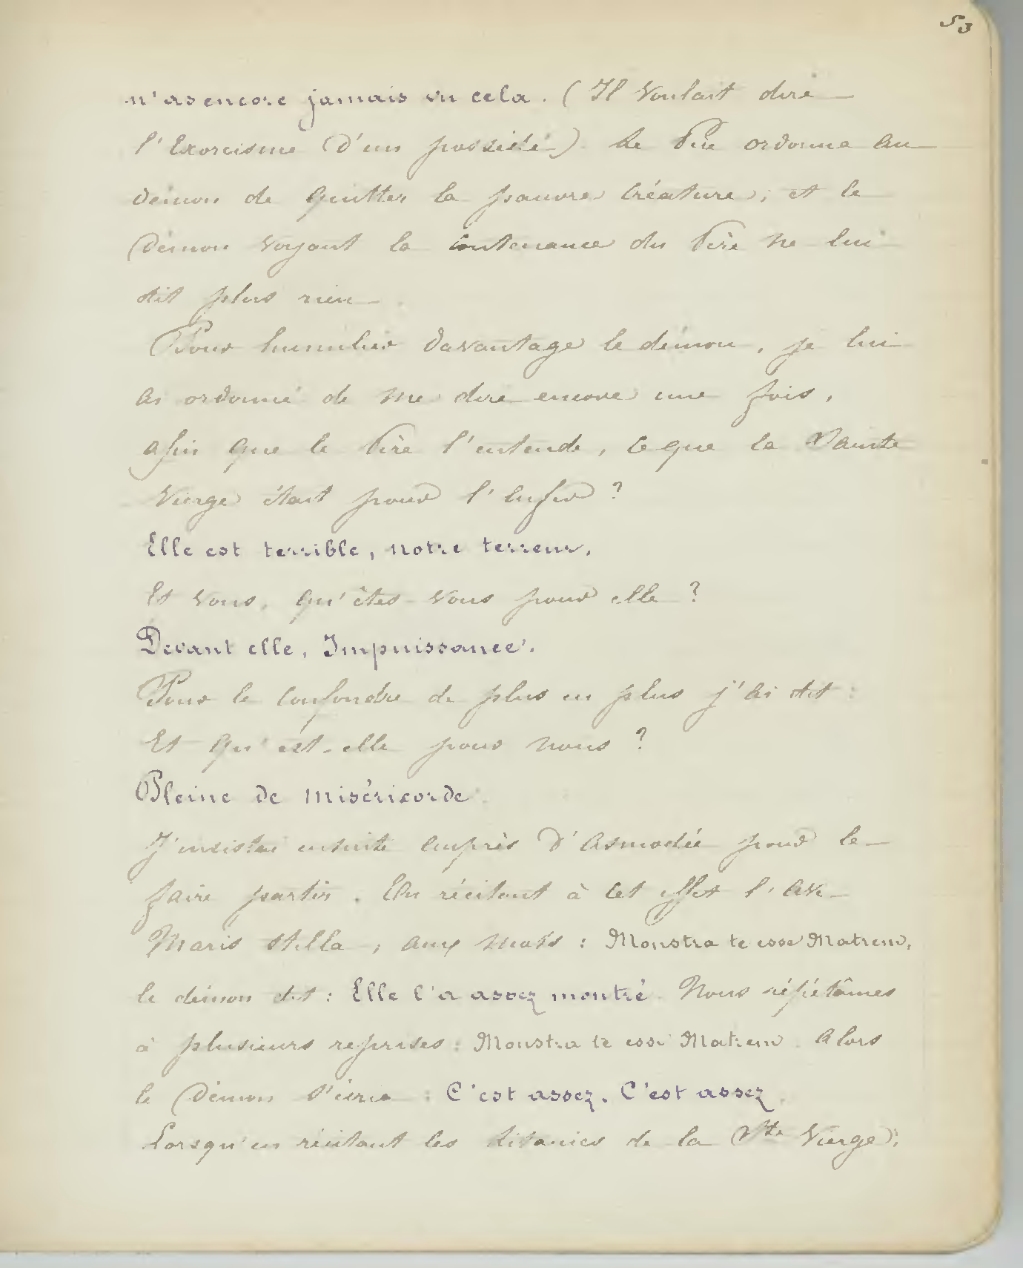 53
n'as encore jamais vu cela. (Il voulait dire
l'Exorcisme d'un possédé). Le Père ordonna au
démon de quitter la pauvre créature; et le
Démon voyant la contenance du Père ne lui
dit plus rien.
Pour humilier davantage le démon, je lui
ai ordonné de me dire encore une fois,
afin que le Père l'entende, ce que la Sainte
Vierge était pour l'enfer ?
Elle est terrible, notre terreur.
Et vous, qu'êtes-vous pour elle ?
Devant elle, Impuissance.
Pour le confondre de plus en plus j'ai dit :
Et qu'est-elle pour nous ?
Pleine de miséricorde.
J'insistai ensuite auprès d'Asmodée pour le
faire partir. En récitant à cet effet l'Ave
Maris Stella, aux mots : Monstra te esse Matrem,
le démon dit : Elle l'a assez montré. Nous répétâmes
à plusieurs reprises : Monstra te esse Matrem. Alors
le Démon s'écria : C'est assez. C'est assez.
Lorsqu'en récitant les litanies de la Ste Vierge,